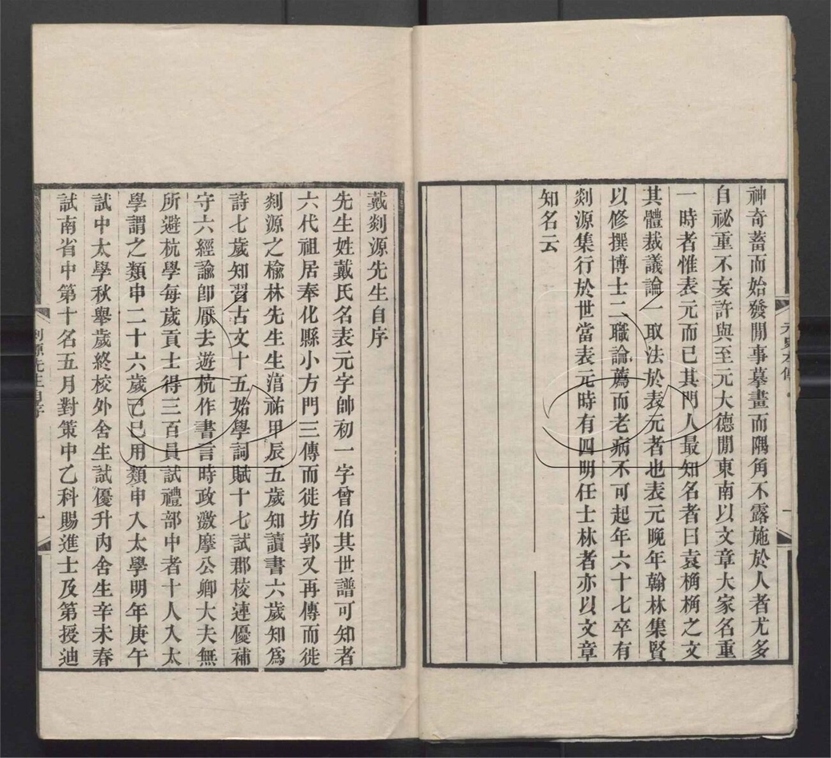 神奇蓄而始發閒事摹畫而隅角不露施於人者尤多
自祕重不妄許與至元大德閒東南以文章大家名重
一時者惟表元而已其門人最知名者曰袁桷桷之文
其體裁議論一取法於表元者也表元晚年翰林集賢
以修撰博士二職論薦而老病不可起年六十七卒有
剡源集行於世當表元時有四明任士林者亦以文章
知名云
元史本傳
一
戴剡源先生自序
先生姓戴氏名表元字帥初一字曾伯其世譜可知者
六代祖居奉化縣小方門三傳而徙坊郭又再傳而徙
剡源之榆林先生生淯祐甲辰五歲知讀書六歲知爲
詩七歲知習古文十五始學詞賦十七試郡校連優補
守六經諭卽厭去遊杭作書言時政激摩公卿大夫無
所避杭學每歲貢士得三百員試禮部中者十人入太
學謂之類申二十六歲己巳用類申入太學明年庚午
試中太學秋舉歲終校外舍生試優升內舍生辛未春
試南省中第十名五月對策中乙科賜進士及第授迪
剡源先生自序
一